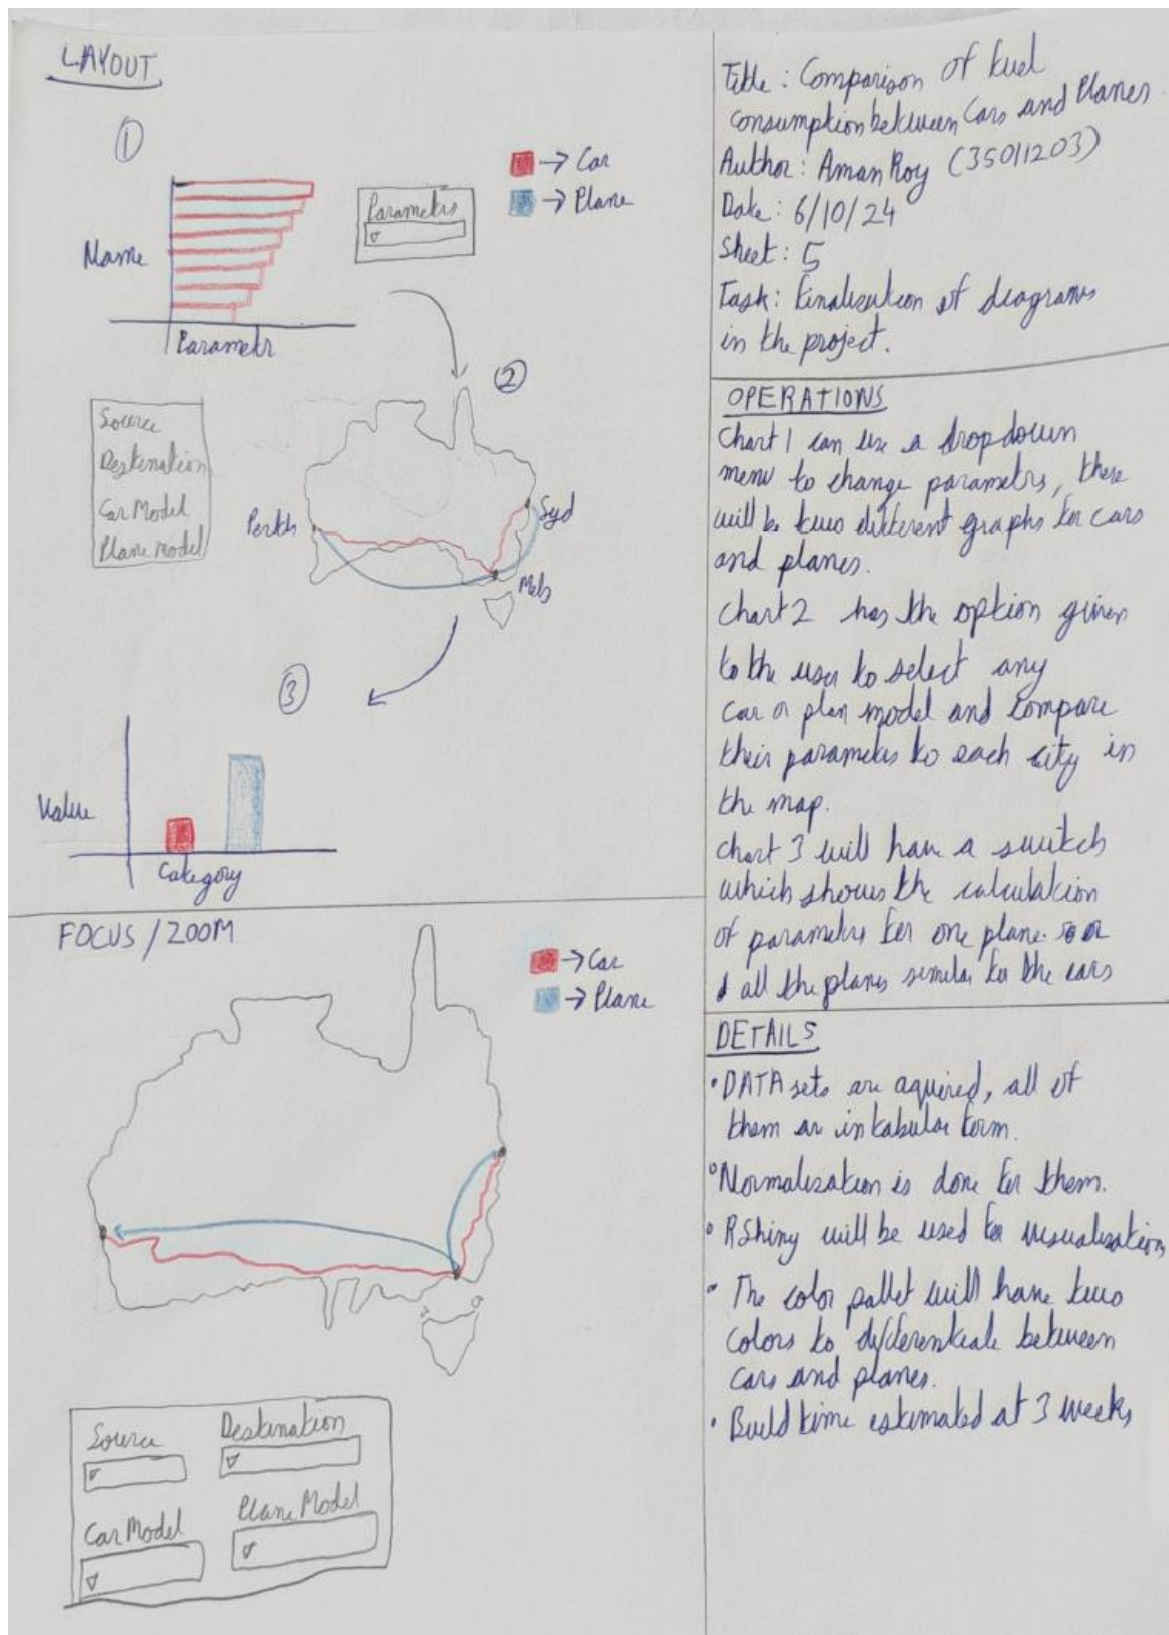 LAYOUT
①
Car
Plane
Parameters
Name
Parametr
②
Source
Destination
Car Model
Plane Model
Perth
Syd
Melb
③
Value
Category
FOCUS / ZOOM
Car
Plane
Source
Destination
Car Model
Plane Model
Title : Comparison of fuel
consumption between Cars and Planes
Author : Aman Roy (35011203)
Date : 6/10/24
Sheet : 5
Task : Finalization of diagrams
in the project.
OPERATIONS
Chart 1 can use a dropdown
menu to change parametrs, there
will be two different graphs for cars
and planes.
Chart 2 has the option given
to the user to select any
car or plan model and compare
their parameters to each city in
the map.
Chart 3 will have a switch
which shows the calculation
of parametrs for one plane or
all the planes similar for the cars
DETAILS
• DATA sets are aquired, all of
them ar in tabular form.
• Normalization is done for them.
• RShiny will be used for visualization
• The color pallet will have two
colors to differentiate between
cars and planes.
• Build time estimated at 3 weeks